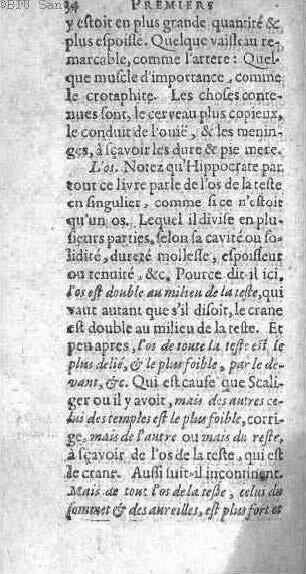 ©BIU San
94 PREMIERE
y eſtoit en plus grande quantité &
plus eſpoiſſe. Quelque vaiſſeau re-
marcable, comme l'artere: Quel-
que muſcle d'importance, comme
le crotaphite. Les choſes conte-
nues ſont, le cerveau plus copieux,
le conduit de l'ouïe, & les menin-
ges, à ſçavoir les dure & pie mere.
L'os. Notez qu'Hippocrate par
tout ce livre parle de l'os de la teſte
en ſingulier, comme ſi ce n'eſtoit
qu'un os. Lequel il diviſe en plu-
ſieurs parties, ſelon ſa cavité ou ſo-
lidité, dureté molleſſe, eſpoiſſeur
ou tenuité, &c. Pource dit il ici,
l'os eſt double au milieu de la teſte, qui
vaut autant que s'il diſoit, le crane
eſt double au milieu de la teſte. Et
peu apres, l'os de toute la teſte eſt le
plus delié, & le plus foible, par le de-
vant, &c. Qui eſt cauſe que Scali-
ger ou il y avoit, mais des autres ce-
lui des temples eſt le plus foible, corri-
ge, mais de l'autre ou mais du reſte,
à ſçavoir de l'os de la teſte, qui eſt
le crane. Auſſi ſuit-il incontinent.
Mais de tout l'os de la teſte, celui du
ſommet & des aureilles, eſt plus fort et